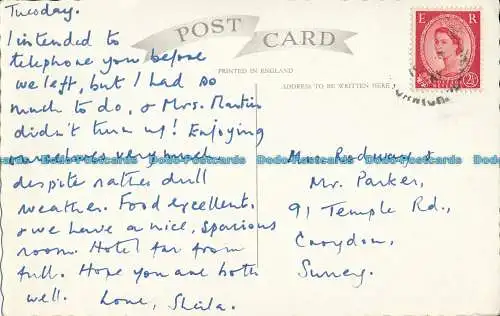 Tuesday.
I intended to
telephone you before
we left, but I had so
much to do, & Mrs. Martin
didn't turn up! Enjoying
ourselves very much
despite rather dull
weather. Food excellent.
& we have a nice, spacious
room. Hotel far from
full. Hope you are both
well. Love, Sheila.
POST CARD
PRINTED IN ENGLAND
ADDRESS TO BE WRITTEN HERE
E R
2½D
Mrs. Rodway &
Mr. Parker,
91 Temple Rd.,
Croydon,
Surrey.
Dodo Postcards Dodo Postcards Dodo Postcards Dodo Postcards